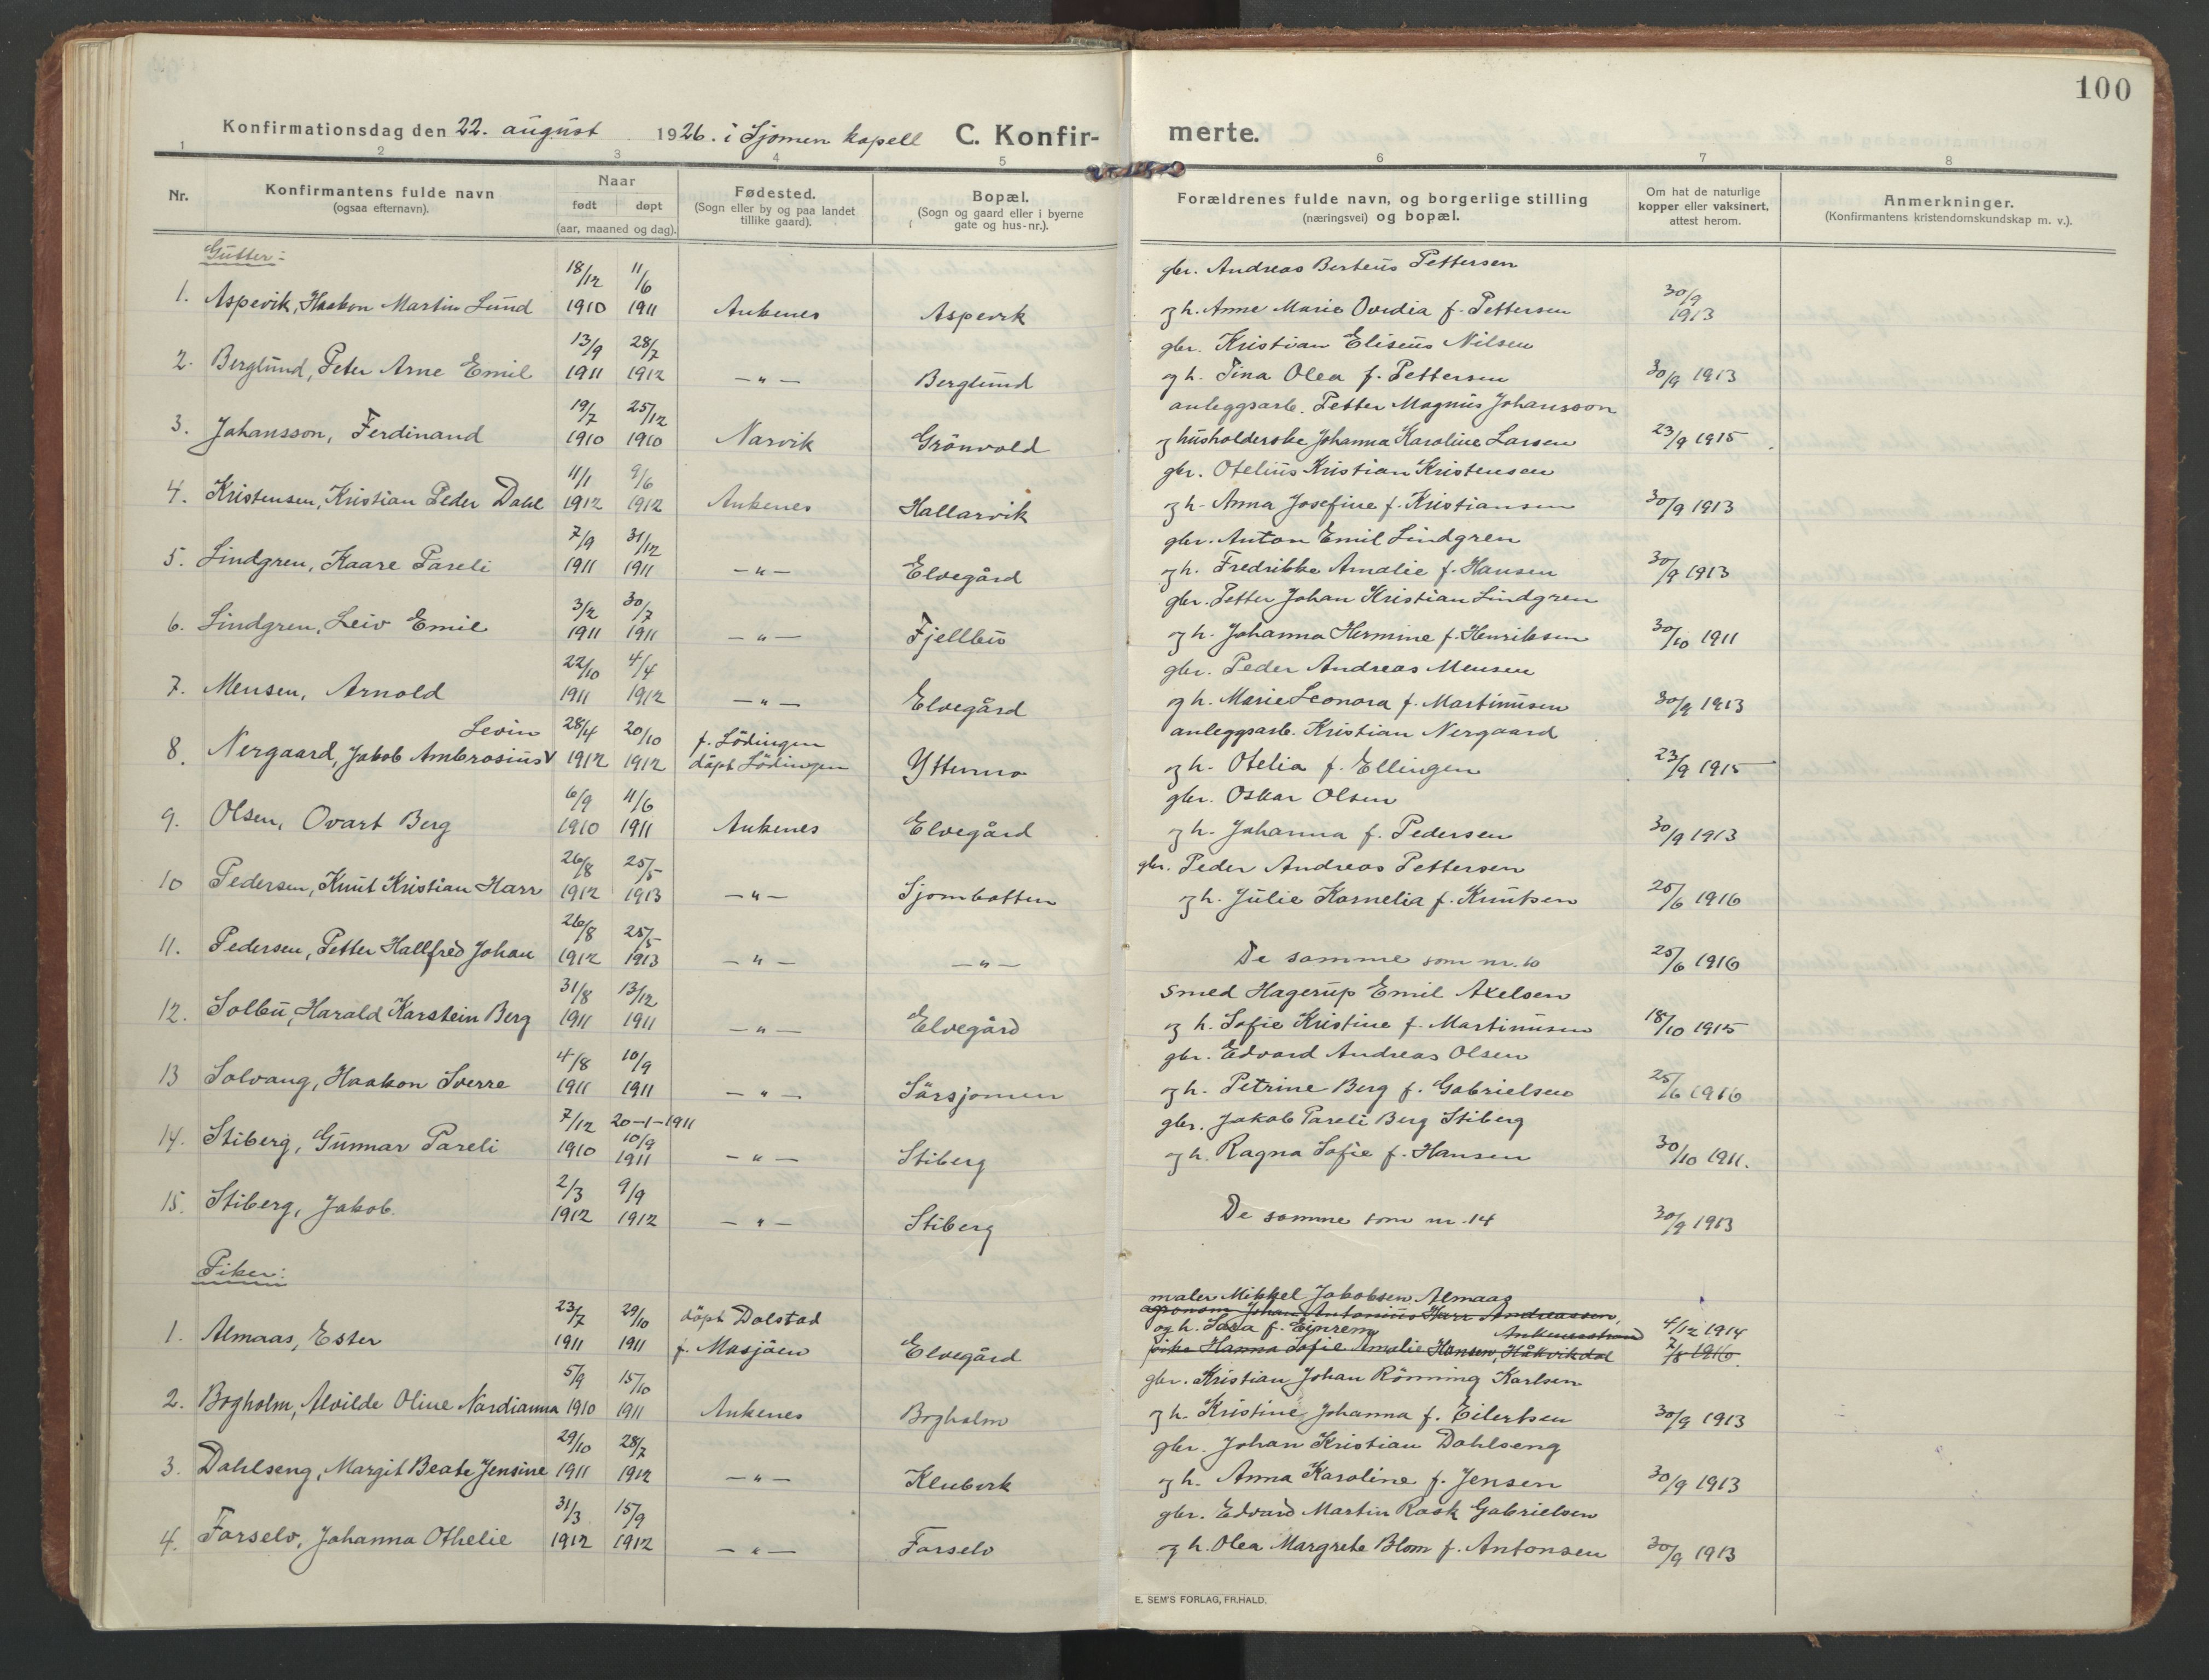 100
Konfirmationsdag den 22. august 1926. i Sjomen kapell C. Konfir- merte.
1 2 3 4 5 6 7 8
Nr. Konfirmantens fulde navn (ogsaa efternavn). Naar født døpt (aar, maaned og dag). Fødested. (Sogn eller by og paa landet tillike gaard). Bopæl. (Sogn og gaard eller i byerne gate og hus-nr.). Forældrenes fulde navn, og borgerlige stilling (næringsvei) og bopæl. Om hat de naturlige kopper eller vaksinert, attest herom. Anmerkninger. (Konfirmantens kristendomskundskap m. v.).
Gutter:
18/12 11/6 gbr. Andreas Berteus Pettersen
1. Aspevik, Haakon Martin Lund 1910 1911 Ankenes Aspevik og h. Anne Marie Ovidia f. Pettersen 30/9 1913
13/9 28/7 gbr. Kristian Eliseus Nilsen
2. Berglund, Peter Arne Emil 1911 1912 -"- Berglund og h. Tina Olea f. Pettersen 30/9 1913
19/7 25/12 anleggsarb. Petter Magnus Johansson
3. Johansson, Ferdinand 1910 1910 Narvik Grönvold og husholderske Johanna Karoline Larsen 23/9 1915
11/1 9/6 gbr. Otelius Kristian Kristensen
4. Kristensen, Kristian Peder Dahl 1912 1912 Ankenes Hallarvik og h. Anna Josefine f. Kristiansen 30/9 1913
7/9 31/12 gbr. Anton Emil Lindgren
5. Lindgren, Kaare Pareli 1911 1911 -"- Elvegård og h. Fredrikke Amalie f. Hansen 30/9 1913
3/2 30/7 gbr. Petter Johan Kristian Lindgren
6. Lindgren, Leiv Emil 1911 1911 -"- Fjellbu og h. Johanna Hermine f. Henriksen 30/10 1911
22/10 4/4 gbr. Peder Andreas Mensen
7. Mensen, Arnold 1911 1912 -"- Elvegård og h. Marie Leonora f. Martinusen 30/9 1913
Levin 28/4 20/10 f. Lödingen anleggsarb. Kristian Nergaard
8. Nergaard, Jakob Ambrosius V 1912 1912 döpt Lödingen Yttermo og h. Otelia f. Ellingen 23/9 1915
6/9 11/6 gbr. Oskar Olsen
9. Olsen, Ovart Berg 1910 1911 Ankenes Elvegård og h. Johanna f. Pedersen 30/9 1913
26/8 25/5 gbr. Peder Andreas Pettersen
10 Pedersen, Knut Kristian Harr 1912 1913 -"- Sjombotten og h. Julie Kornelia f. Knutsen 25/6 1916
26/8 25/5
11. Pedersen, Petter Hallfred Johan 1912 1913 -"- -"- De samme som nr. 10 25/6 1916
31/8 13/12 Smed Hagerup Emil Axelsen
12. Solbu, Harald Karstein Berg 1911 1911 -"- Elvegård og h. Sofie Kristine f. Martinusen 18/10 1915
4/8 10/9 gbr. Edvard Andreas Olsen
13 Solvang, Haakon Sverre 1911 1911 -"- Sörsjomen og h. Petrine Berg f. Gabrielsen 25/6 1916
7/12 20-1-1911 gbr. Jakob Pareli Berg Stiberg
14. Stiberg, Gunnar Pareli 1910 10/9 1911 -"- Stiberg og h. Ragna Sofie f. Hansen 30/10 1911.
2/3 9/9
15. Stiberg, Jakob. 1912 1912 -"- Stiberg De samme som nr. 14 30/9 1913
Piker:
maler Mikkel Jakobsen Almaas
23/7 29/10 döpt Dolstad agronom Johan Antonius Harr Andreassen, Ankenesstrand
og h. Sara f. Einrem 4/12 1914
1. Almaas, Ester 1911 1911 f. Mosjöen Elvegård pike Hanna Sofie Amalie Hansen, Håkvikdal 7/8 1916.
5/9 15/10 gbr. Kristian Johan Rönning Karlsen
2. Bogholm, Alvilde Oline Nordianna 1910 1911 Ankenes Bogholm og h. Kristine Johanna f. Eilertsen 30/9 1913
29/10 28/7 gbr. Johan Kristian Dahlseng
3. Dahlseng, Margit Beate Jensine 1911 1912 -"- Klubvik og h. Anna Karoline f. Jensen 30/9 1913
31/3 15/9 gbr. Edvard Martin Rask Gabrielsen
4. Forselv, Johanna Othelie 1912 1912 -"- Forselv og h. Olea Margrete Blom f. Antonsen 30/9 1913
E. SEM'S FORLAG, FR.HALD.